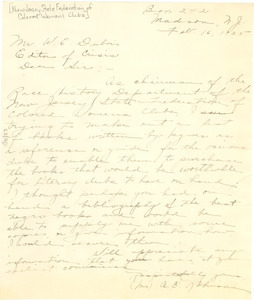 [New Jersey State Federation of
Colored Women's Clubs]
Box 242
Madison, N.J.
Feb 16, 1925
Mr W. E. Dubois
Editor of Crisis
Dear Sir:
As chairman of the
Race history Department of the
New Jersey State Federation of
Colored Women's Clubs, I am
trying to make out a list
of books written by negroes as
a reference or guide for the various
clubs to enable them to purchase
the books that would be worthwhile
for literary clubs to have on hand.
I thought perhaps you had, on
hand, a bibliography of the best
negro books and would be
able to supply me with some
copies or give information how
I should secure them.
Will appreciate any
information that you have at your
earliest convenience
Respectfully yours
(Mrs) A. E. Johnson